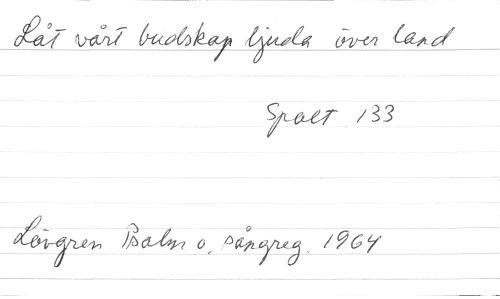 Låt vårt budskap ljuda över land
Spalt 133
Lövgren Psalm o. sångreg. 1964